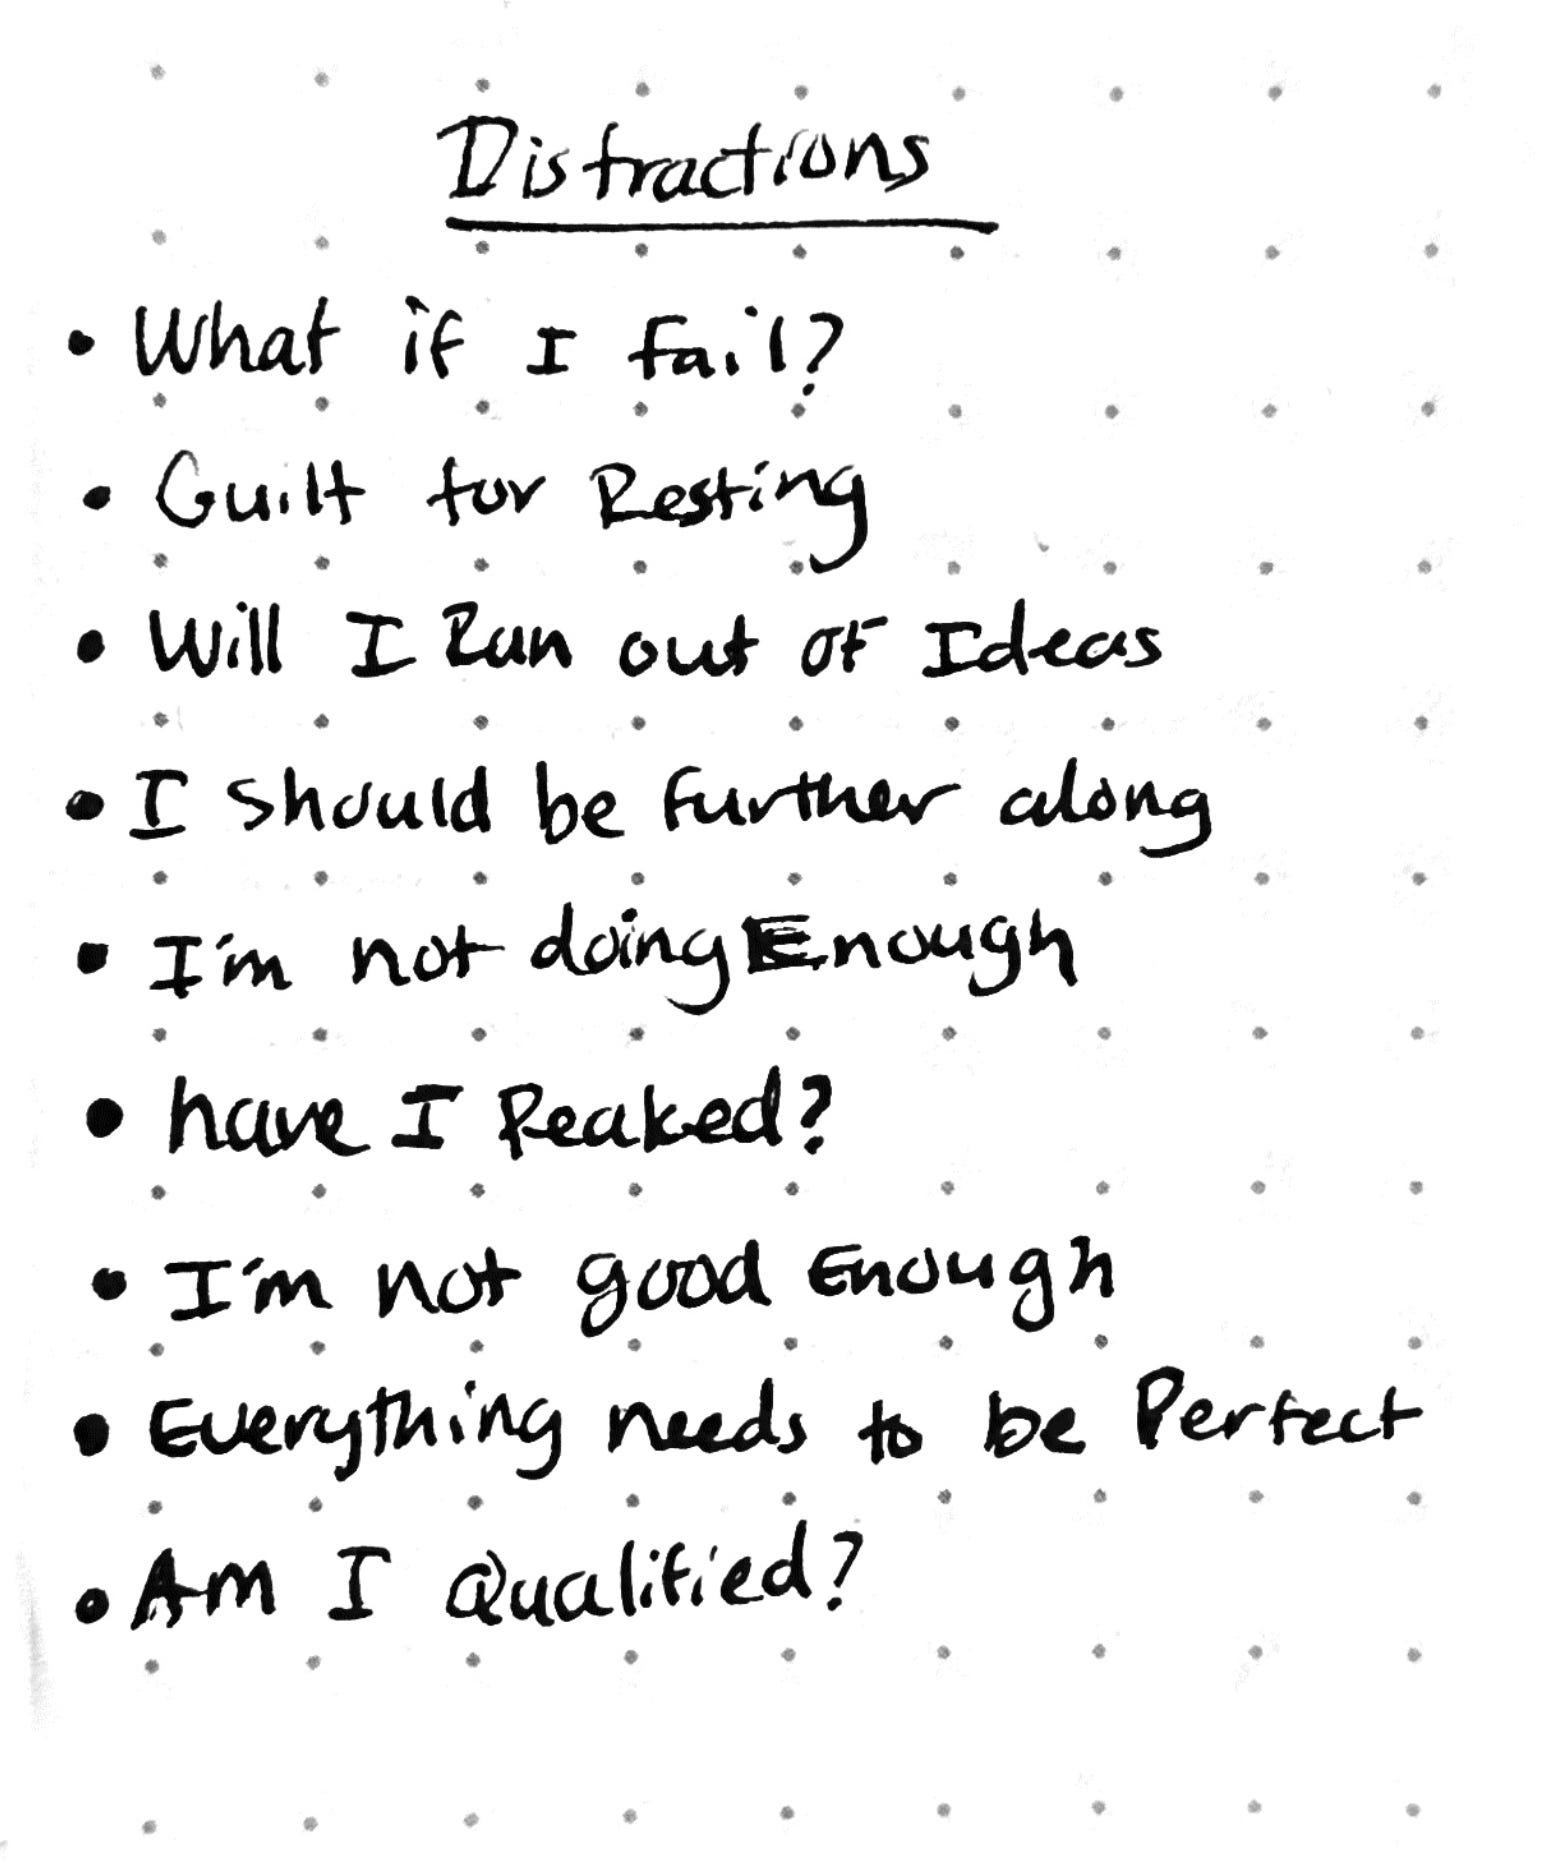 Distractions
• What if I fail?
• Guilt for Resting
• Will I Run out of Ideas
• I should be further along
• I'm not doing Enough
• have I Peaked?
• I'm not good Enough
• Everything needs to be Perfect
• Am I Qualified?